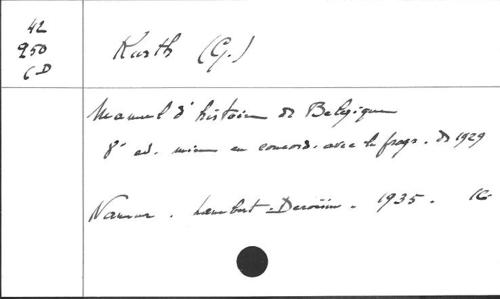 42
950
CD
Kurth (G.)
Manuel d'histoire de Belgique
8e ed. mise en concord. avec le progr. de 1929
Namur. Lambert-Deroisin. 1935.